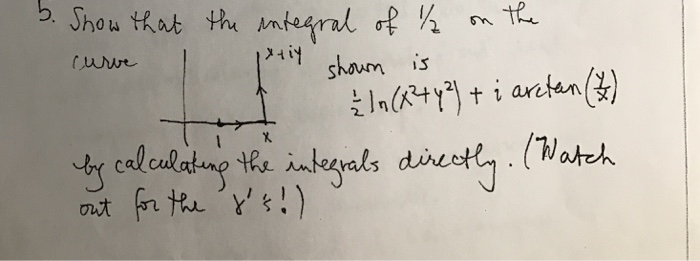 5. Show that the integral of 1/2 on the
curve
x+iy
shown is
1/2 ln(x²+y²) + i arctan(y/x)
1
x
by calculating the integrals directly. (Watch
out for the γ's!)